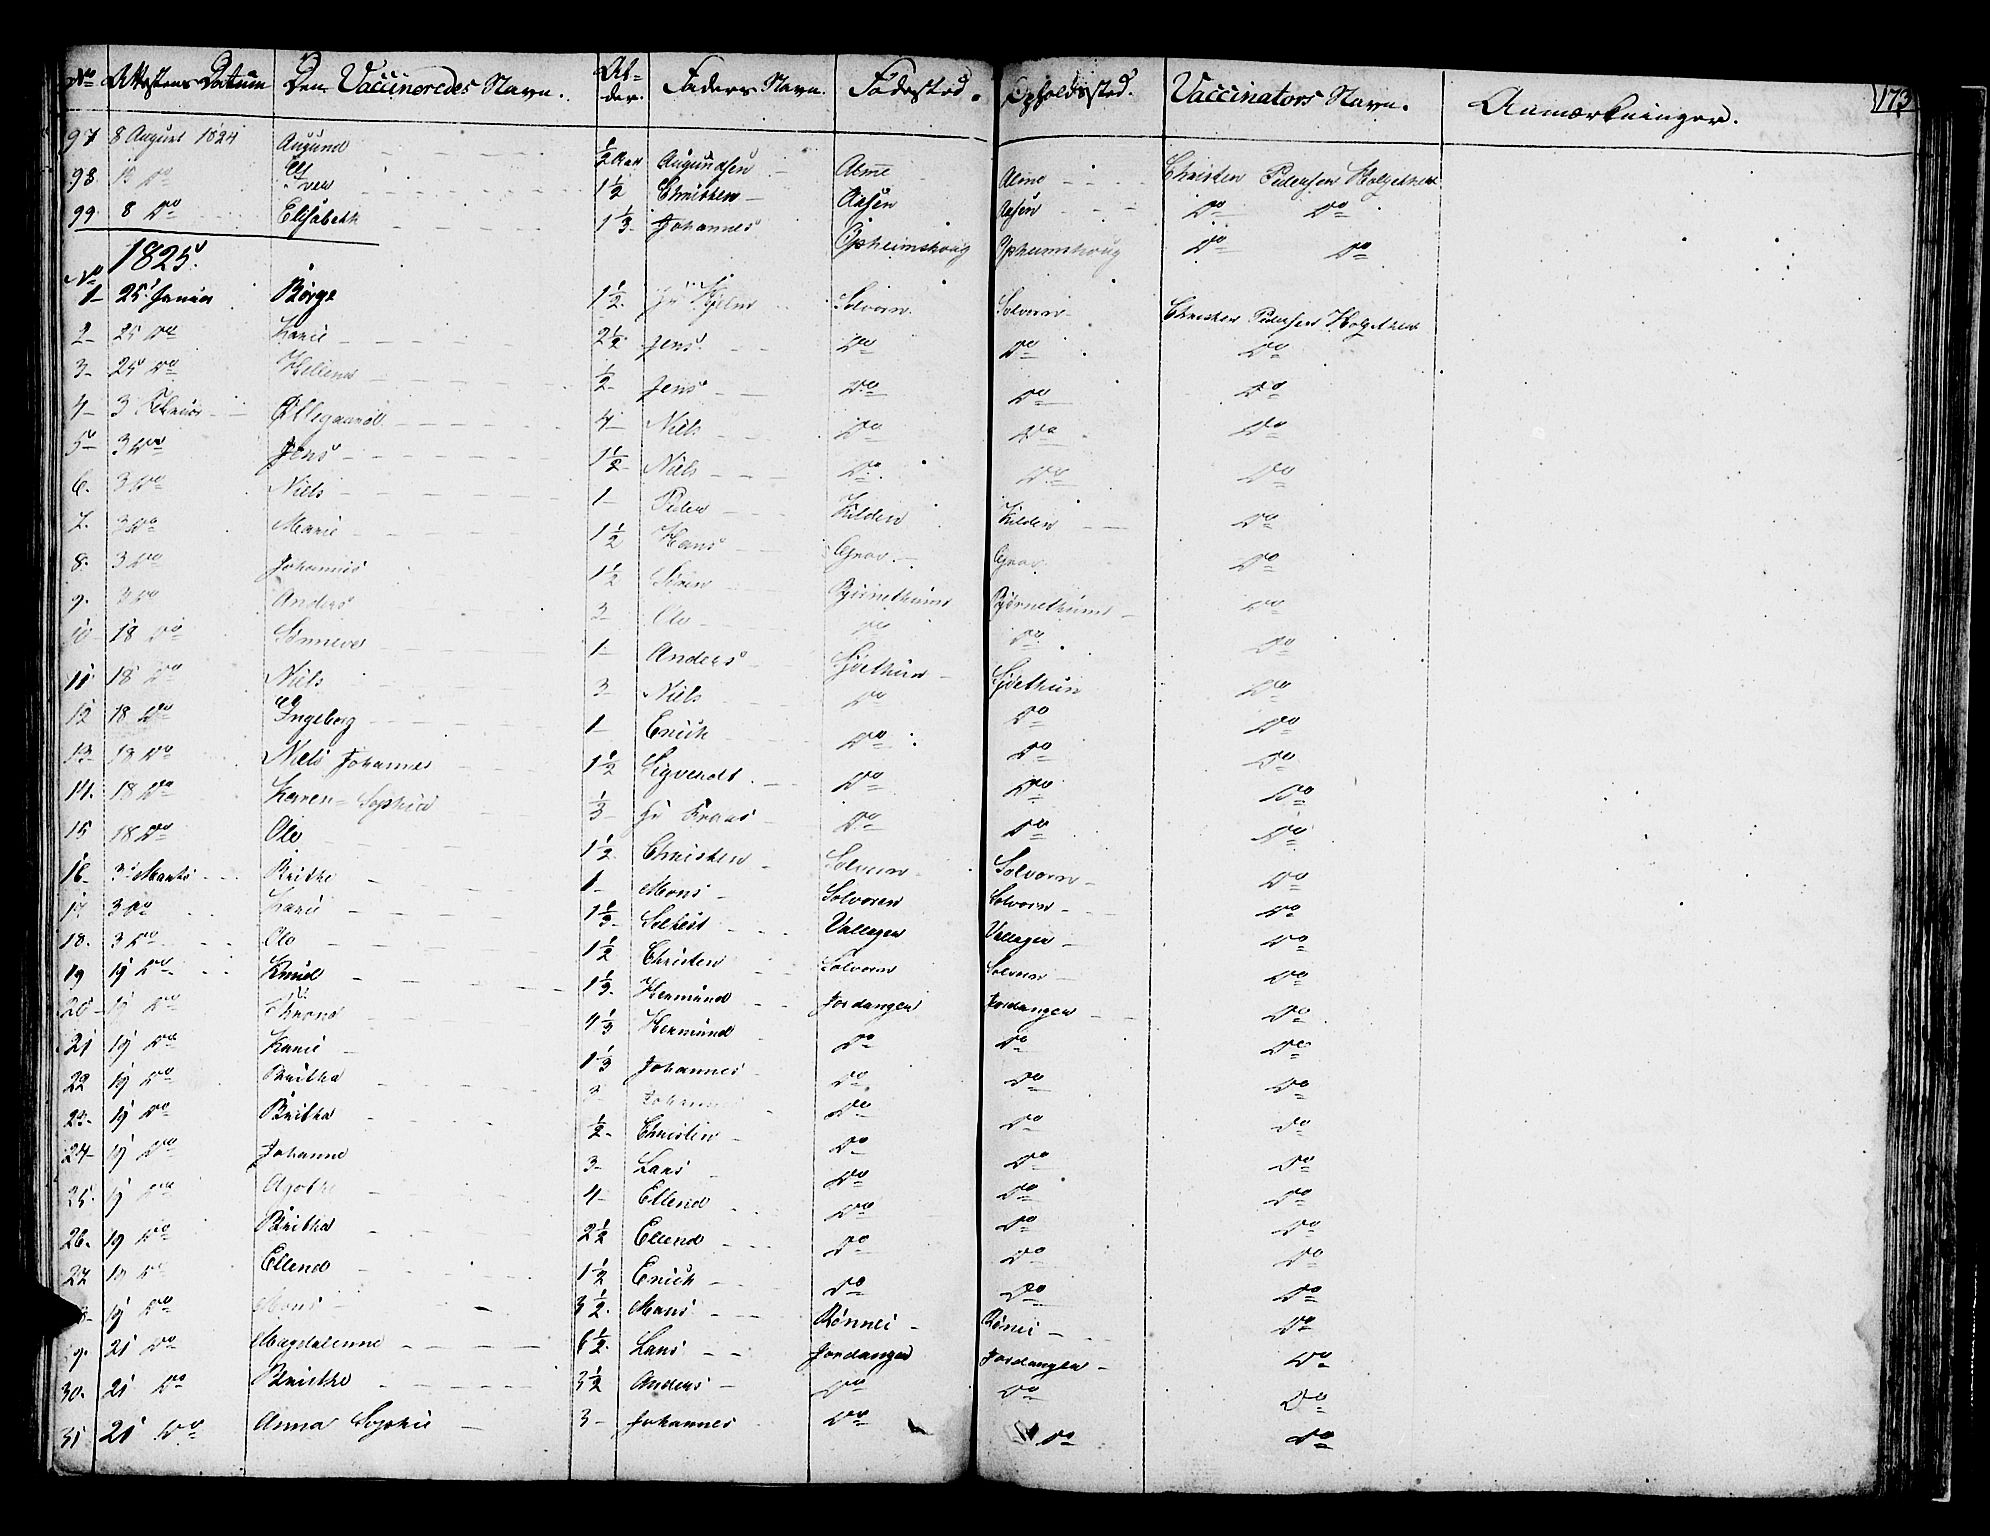 No Attestens Datum Den Vaccineredes Navn. Al-der. Faders Navn. Fødested. Opholdssted. Vaccinators Navn. Anmærkninger. 173
97 8 August 1824 Augund ½ Aar Augundsen Alme Alme Christen Pedersen Molgethun
98 15 Do 1½ Christen Aasen Aasen Do Do
99 8 Do Elisabeth 1⅓ Johannes Opheimshoug Opheimshoug Do Do
No 1825.
1 25 Januar Børge 1½ Hr Solvorn Solvorn Christen Pedersen Molgethun
2 25 Do Karie 2½ Jens Do Do Do
3 25 Do Hellena ½ Jens Do Do Do
4 3 Februar Øllegaard 4 Niels Do Do Do
5 3 Do Jens 1½ Niels Do Do Do
6. 3 Do Niels 1 Peder Kilden Kilden Do
7. 3 Do Marie 1½ Hans Grov Grov Do
8. 3 Do Johannes 1½ Siven Bjørnethuns Bjørnethuns Do
9. 3 Do Anders 3 Ole Do Do Do
10 18 Do Sønneva 1 Anders Gjøethun Gjøethun Do
11 18 Do Niels 3 Niels Do Do Do
12 18 Do Ingeborg 1 Erich Do Do Do
13 18 Do Niels Johannes 1½ Sigvardt Do Do Do
14. 18 Do Karen Sophia ⅓ Hr Do Do Do
15 18 Do Ole 1½ Christen Solvorn Solvorn Do
16 3 Marts Brithe 1 Mons Solvoren Solvorn Do
17 3 Do Karie 1⅓ Vallagen Vallagen Do
18. 3 Do Ole 1½ Christen Solvorn Solvorn Do
19 19 Do Knud 1⅓ Hermund Jordangen Jordangen Do
20 19 Do Thrond 4⅓ Hermund Do Do Do
21 19 Do Karie 1⅓ Johannes Do Do Do
22 19 Do Britha Johannes Do Do Do
23. 19 Do Britha ½ Christen Do Do Do
24 19 Do Johanne 3 Lars Do Do Do
25. 19 Do Agathe 4 Ellend Do Do Do
26. 19 Do Britha 2½ Ellend Do Do Do
27 19 Do Ellend 1½ Erich Do Do Do
8 19 Do Mons 3½ Mons Rønnei Rønei Do
9. 21 Do Magdalenne 6½ Lars Jordangen Jordangen Do
30. 21 Do Brithe 3½ Anders Do Do Do
31 21 Do Anna Sophie 3 Johannes Do Do Do